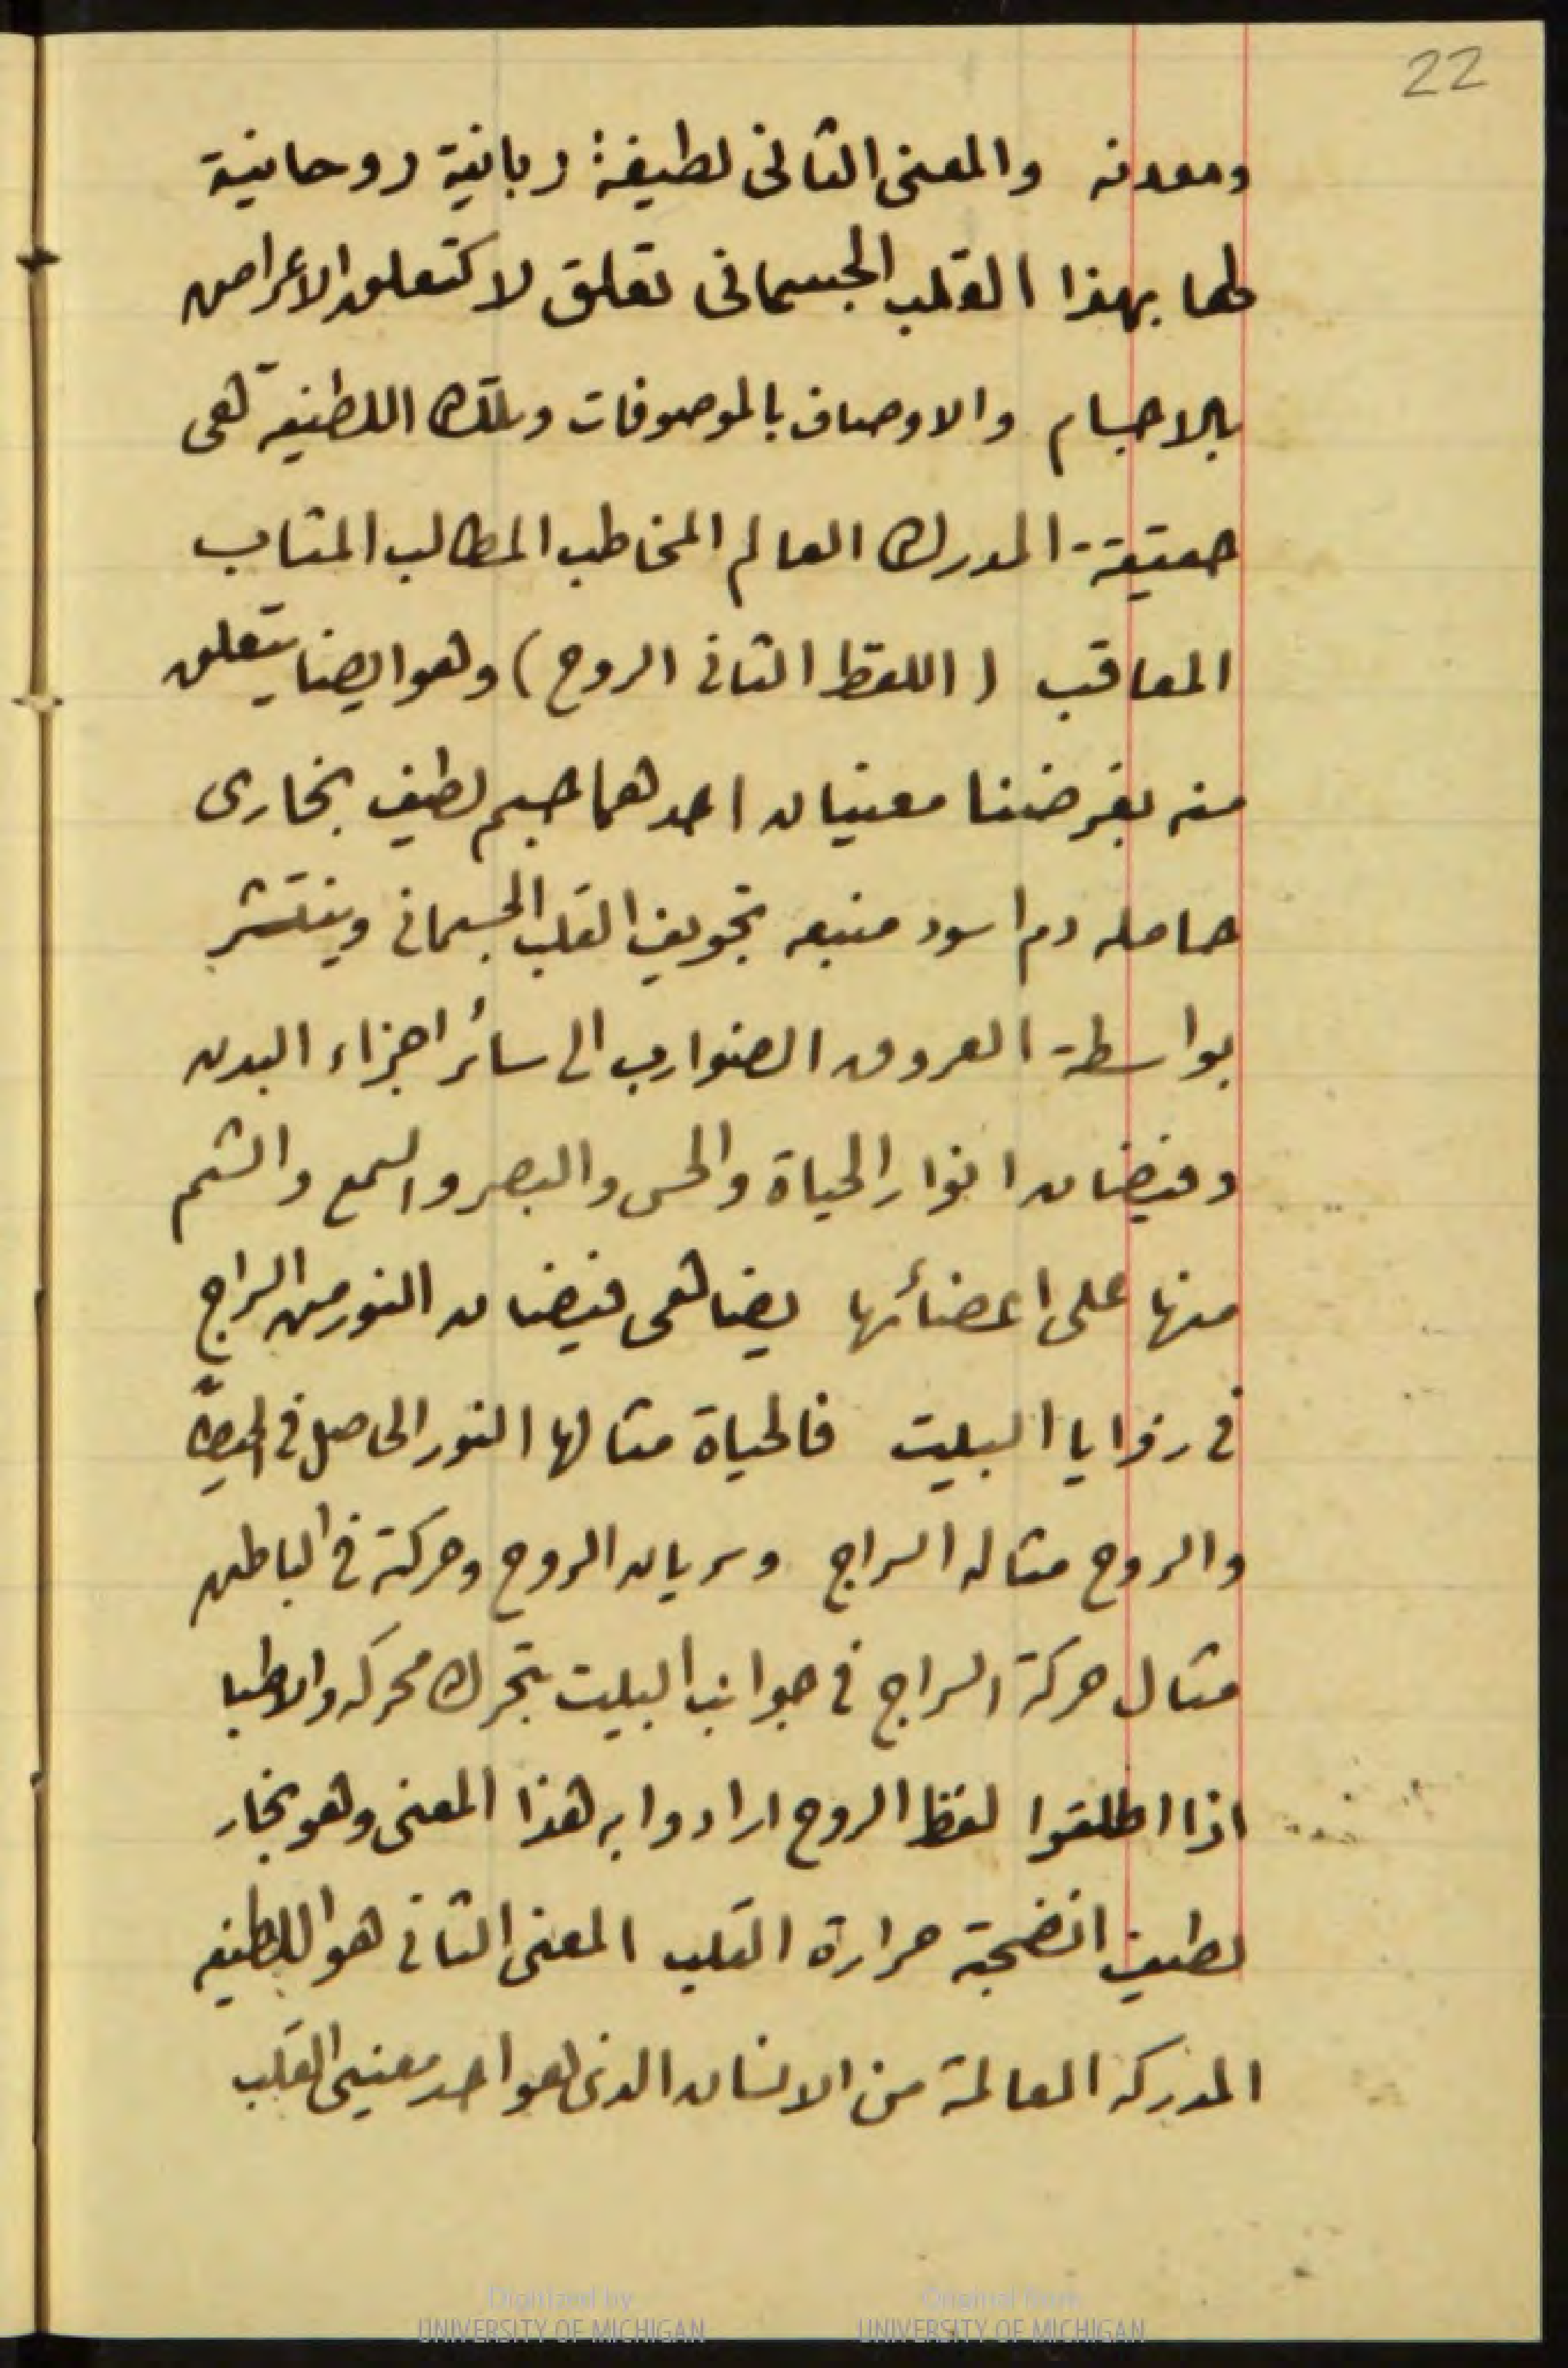 22
ومعدنه والمعنى الثانى لطيفة ربانية روحانية
لها بهذا القلب الجسمانى تعلق لا كتعلق الاعراض
بالاجسام والاوصاف بالموصوفات وتلك اللطيفه هى
حقيقة المدرك العالم المخاطب المطالب المثاب
المعاقب (اللفظ الثانى الروح) وهو ايضا يتعلق
منه بغرضنا معنيان احدهما جسم لطيف بخارى
حامله دم اسود منبعه تجويف القلب الجسمانى وينتشر
بواسطة العروق الضوارب الى سائر اجزاء البدن
وفيضان انوار الحياة والحس والبصر والسمع والشم
منها على اعضائها يضاهى فيضان النور من السراج
فى زوايا البيت فالحياة مثالها النور الحاصل فى
والروح مثاله السراج وسريان الروح وحركة فى الباطن
مثال حركة السراج فى جوانب البيت بتحرك محركه والاطبا
اذا اطلقوا لفظ الروح ارادوا به هذا المعنى وهو بخار
لطيف انضجته حرارة القلب المعنى الثانى هو اللطيفه
المدركه العالمة من الانسان الذى هو احد معنيى القلب
Digitized by
UNIVERSITY OF MICHIGAN
Original from
UNIVERSITY OF MICHIGAN